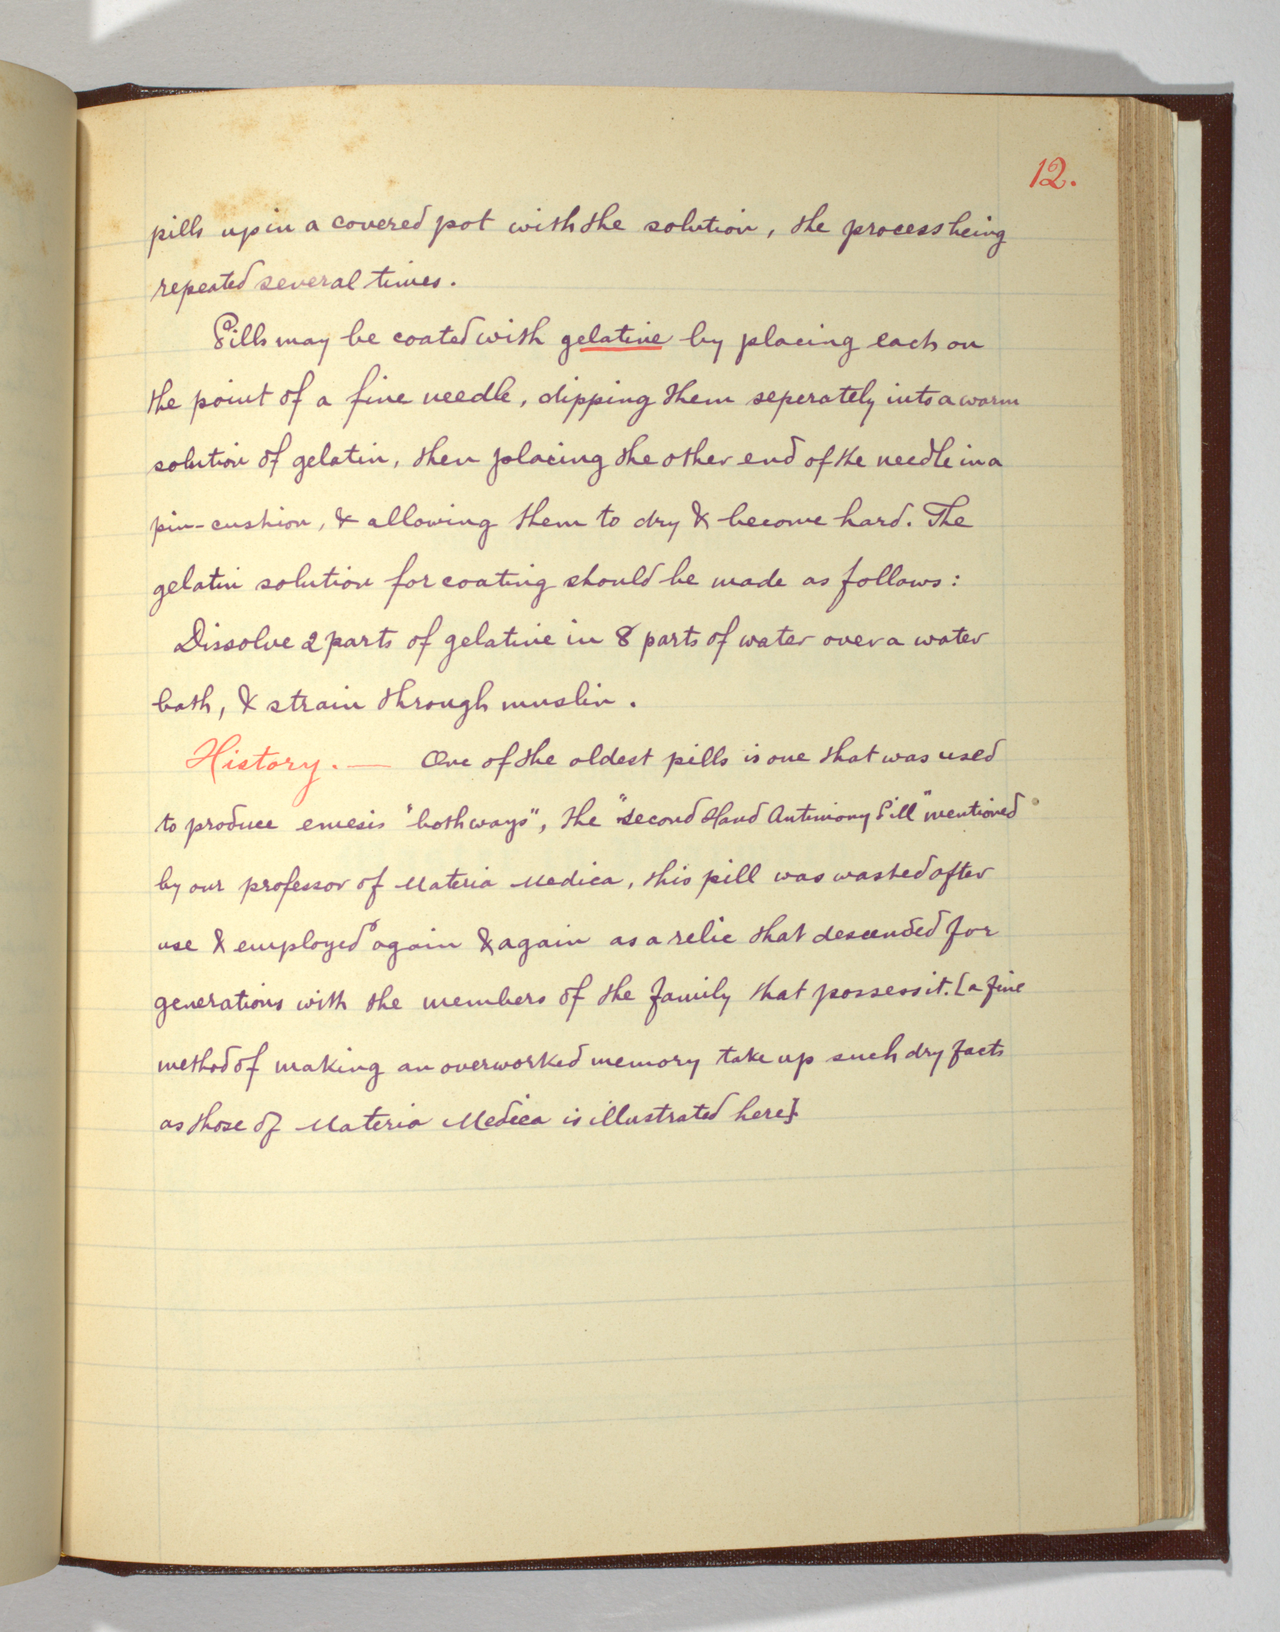 12.
pills up in a covered pot with the solution, the process being
repeated several times.
Pills may be coated with gelatine by placing each on
the point of a fine needle, dipping them seperately into a warm
solution of gelatin, then placing the other end of the needle in a
pin-cushion, & allowing them to dry & become hard. The
gelatin solution for coating should be made as follows:
Dissolve 2 parts of gelatine in 8 parts of water over a water
bath, & strain through muslin.
History. — One of the oldest pills is one that was used
to produce emesis "both ways", the "second Hand Antimony Pill" mentioned
by our professor of Materia Medica, this pill was washed after
use & employed again & again as a relic that descended for
generations with the members of the family that possess it. [a fine
method of making an overworked memory take up such dry facts
as those of Materia Medica is illustrated here].